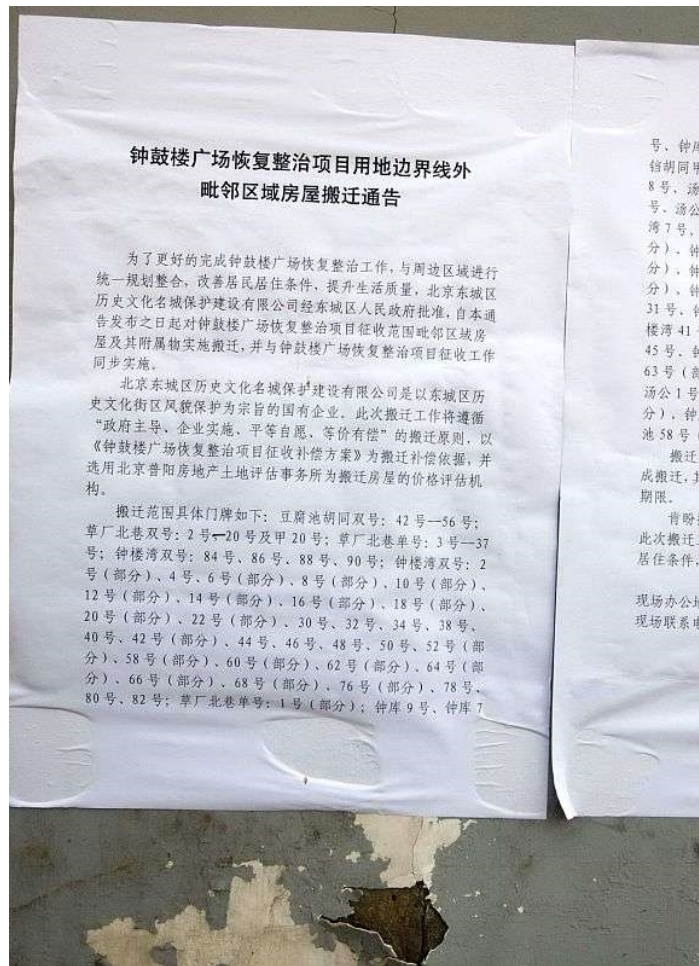 钟鼓楼广场恢复整治项目用地边界线外
毗邻区域房屋搬迁通告
为了更好的完成钟鼓楼广场恢复整治工作，与周边区域进行
统一规划整合，改善居民居住条件，提升生活质量，北京东城区
历史文化名城保护建设有限公司经东城区人民政府批准，自本通
告发布之日起对钟鼓楼广场恢复整治项目征收范围毗邻区域房
屋及其附属物实施搬迁，并与钟鼓楼广场恢复整治项目征收工作
同步实施。
北京东城区历史文化名城保护建设有限公司是以东城区历
史文化街区风貌保护为宗旨的国有企业。此次搬迁工作将遵循
“政府主导、企业实施、平等自愿、等价有偿”的搬迁原则，以
《钟鼓楼广场恢复整治项目征收补偿方案》为搬迁补偿依据，并
选用北京普阳房地产土地评估事务所为搬迁房屋的价格评估机
构。
搬迁范围具体门牌如下：豆腐池胡同双号：42号—56号；
草厂北巷双号：2号—20号及甲20号；草厂北巷单号：3号—37
号；钟楼湾双号：84号、86号、88号、90号；钟楼湾双号：2
号（部分）、4号、6号（部分）、8号（部分）、10号（部分）、
12号（部分）、14号（部分）、16号（部分）、18号（部分）、
20号（部分）、22号（部分）、30号、32号、34号、38号、
40号、42号（部分）、44号、46号、48号、50号、52号（部
分）、58号（部分）、60号（部分）、62号（部分）、64号（部
分）、66号（部分）、68号（部分）、76号（部分）、78号、
80号、82号；草厂北巷单号：1号（部分）；钟库9号、钟库7
号、钟库
铛胡同甲
8号、汤
号、汤公
湾7号、
分）、钟
分）、钟
分）、钟
31号、钟
楼湾41号
45号、钟
63号（部
汤公1号
分）、钟
池58号（
搬迁
成搬迁，其
期限。
肯盼
此次搬迁工
居住条件，
现场办公地
现场联系电